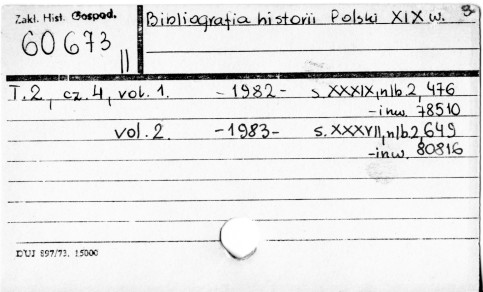 Zakł. Hist. Gospod.
60673
II
Bibliografia historii Polski XIX w. 3.
T.2, cz.4, vol.1. -1982- s. XXXIX, nlb.2, 476
-inw. 78510
vol.2. -1983- s. XXXVII, nlb.2, 649
-inw. 80816
DUJ 897/73. 15000